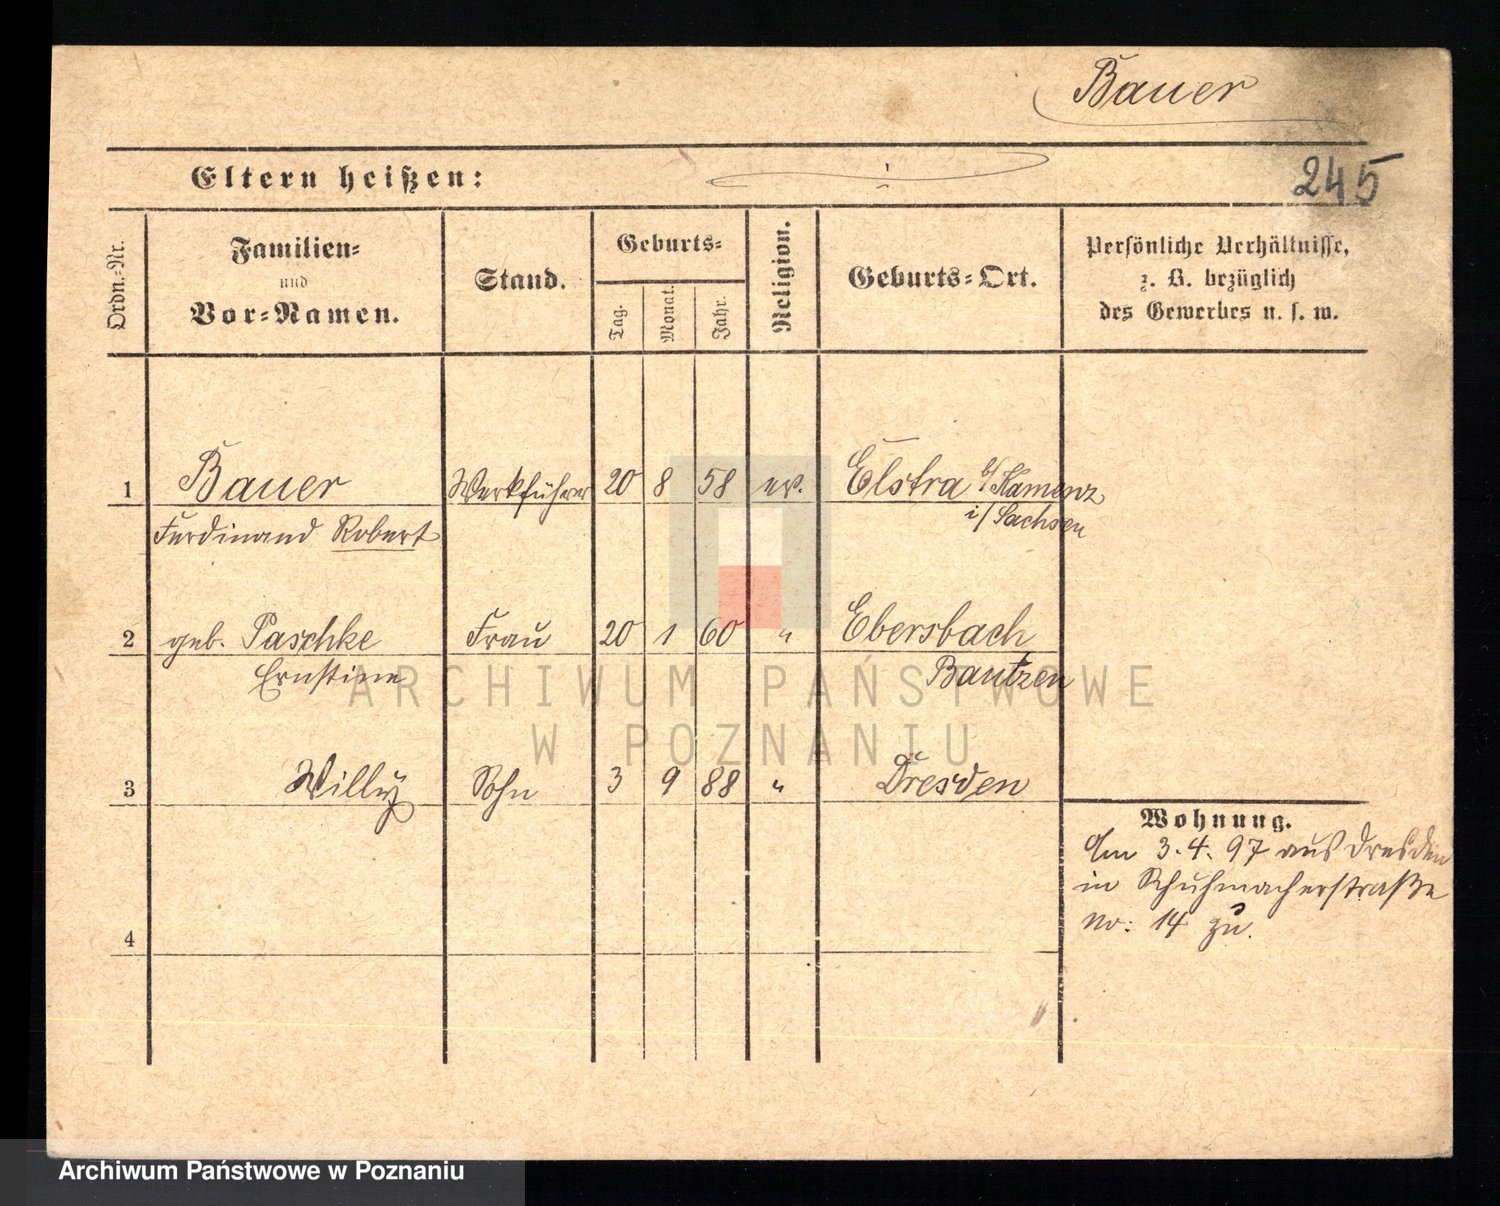 Bauer
245
Eltern heißen:
Ordn.-Nr.
Familien-
und
Vor-Namen.
Stand.
Geburts-
Tag.
Monat.
Jahr.
Religion.
Geburts-Ort.
Persönliche Verhältnisse,
z. B. bezüglich
des Gewerbes u. s. w.
1 Bauer Werkführer 20 8 58 ev. Elstra b/ Kamenz
Ferdinand Robert i/ Sachsen
2 geb. Paschke Frau 20 1 60 " Ebersbach
Ernstine Bautzen
3 Willy Sohn 3 9 88 " Dresden
Wohnung.
Am 3.4.97 aus Dresden
in Schuhmacherstraße
no: 14 zu.
4
ARCHIWUM PAŃSTWOWE
W POZNANIU
Archiwum Państwowe w Poznaniu